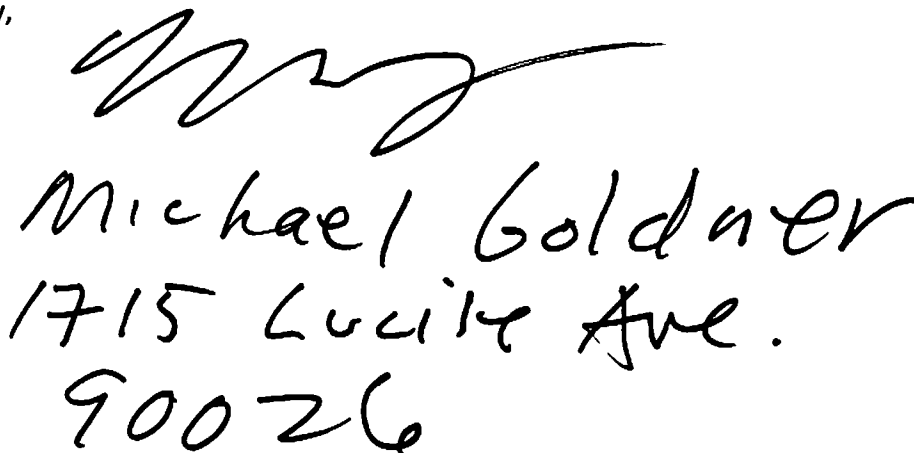 Michael Goldner
1715 Lucile Ave.
90026